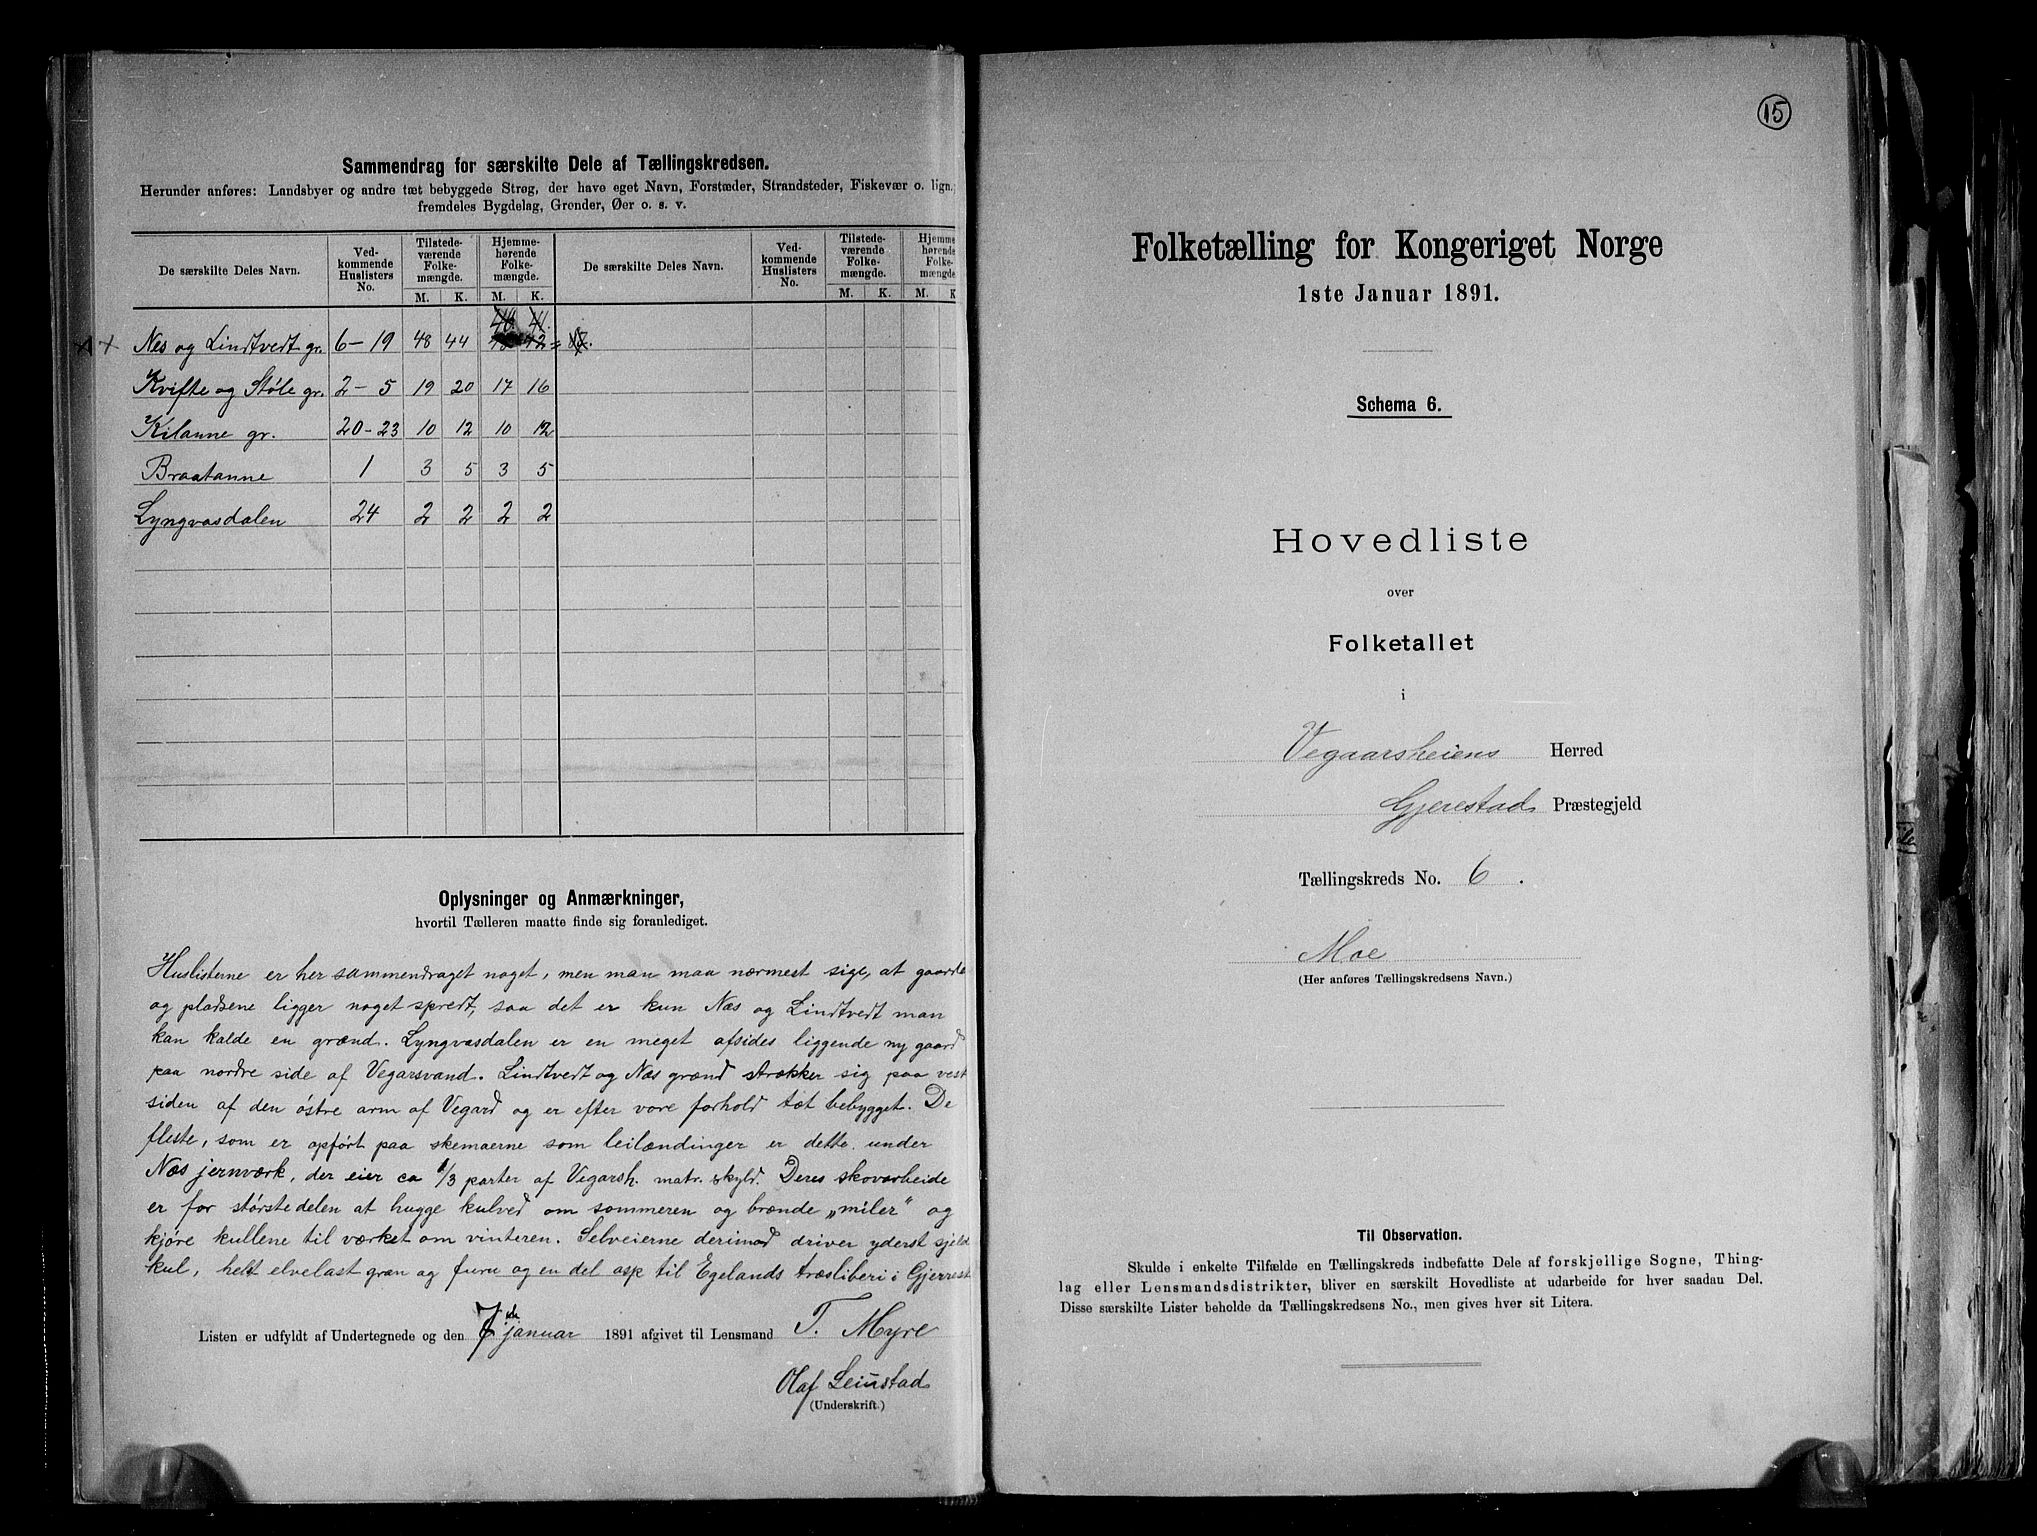 Sammendrag for særskilte Dele af Tællingskredsen.
Herunder anføres: Landsbyer og andre tæt bebyggede Strøg, der have eget Navn, Forstæder, Strandsteder, Fiskevær o. lign.,
fremdeles Bygdelag, Grender, Øer o. s. v.
De særskilte Deles Navn. Ved-kommende Huslisters No. Tilstede-værende Folke-mængde. Hjemme-hørende Folke-mængde. De særskilte Deles Navn. Ved-kommende Huslisters No. Tilstede-værende Folke-mængde. Hjemme-hørende Folke-mængde.
M. K. M. K. M. K. M. K
40 41.
Nes og Lindtvedt gr. 6-19 48 44 42
Kvifte og Støle gr. 2-5 19 20 17 16
Kilanne gr. 20-23 10 12 10 12
Braatanne 1 3 5 3 5
Lyngvasdalen 24 2 2 2 2
Oplysninger og Anmærkninger,
hvortil Tælleren maatte finde sig foranlediget.
Huslisterne er her sammendraget noget, men man maa nærmest sige, at gaarde
og pladsene ligger noget spredt, saa det er kun Næs og Lindtvedt man
kan kalde en grænd. Lyngvasdalen er en meget afsides liggende ny gaard
paa nordre side af Vegarsvand. Lindtvedt og Næs grænd strækker sig paa vest
siden af den østre arm af Vegard og er efter vore forhold tæt bebygget. De
fleste, som er opført paa skemaerne som leilændinger er dette under
Næs jernværk, der eier ca 1/3 parter af Vegarsh. matr. skyld. Deres skovarbeide
er for størstedelen at hugge kulved om sommeren og brænde „miler" og
kjøre kullene til værket om vinteren. Selveierne derimod driver yderst sjeld
kul, helt elvelast gran og furu og en del asp til Egelands træsliberi i Gjerrest
Listen er udfyldt af Undertegnede og den 7de januar 1891 afgivet til Lensmand T. Myre
Olaf Leiustad
(Underskrift.)
15
Folketælling for Kongeriget Norge
1ste Januar 1891.
Schema 6.
Hovedliste
over
Folketallet
i
Vegaarsheiens Herred
Gjerestad Præstegjeld
Tællingskreds No. 6.
Moe
(Her anføres Tællingskredsens Navn.)
Til Observation.
Skulde i enkelte Tilfælde en Tællingskreds indbefatte Dele af forskjellige Sogne, Thing-
lag eller Lensmandsdistrikter, bliver en særskilt Hovedliste at udarbeide for hver saadan Del.
Disse særskilte Lister beholde da Tællingskredsens No., men gives hver sit Litera.